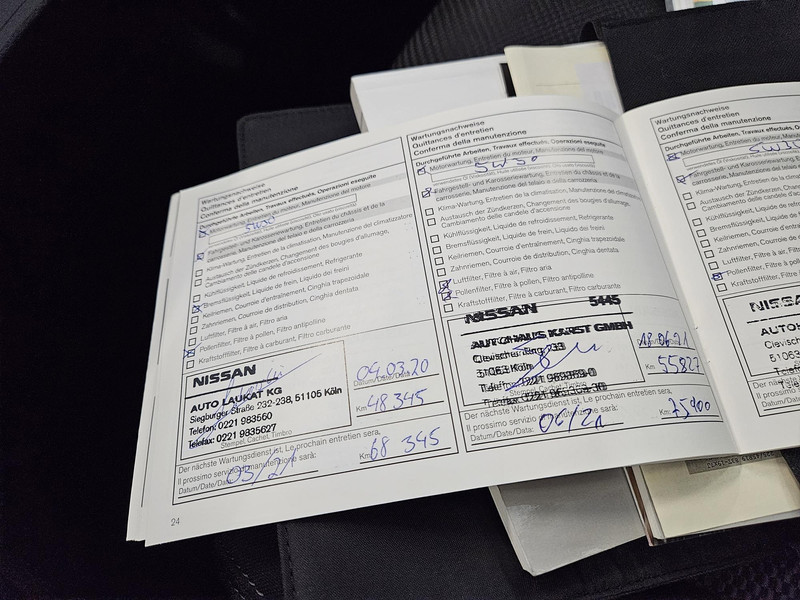 Wartungsnachweise
Quittances d'entretien
Conferma della manutenzione
Durchgeführte Arbeiten, Travaux effectués, Operazioni eseguite
Motorwartung, Entretien du moteur, Manutenzione del motore
5W30
Fahrgestell- und Karosseriewartung, Entretien du châssis et de la
carrosserie, Manutenzione del telaio e della carrozzeria
Klima-Wartung, Entretien de la climatisation, Manutenzione del climatizzatore
Austausch der Zündkerzen, Changement des bougies d'allumage,
Cambiamento delle candele d'accensione
Kühlflüssigkeit, Liquide de refroidissement, Refrigerante
Bremsflüssigkeit, Liquide de frein, Liquido dei freini
Keilriemen, Courroie d'entraînement, Cinghia trapezoidale
Zahnriemen, Courroie de distribution, Cinghia dentata
Luftfilter, Filtre à air, Filtro aria
Pollenfilter, Filtre à pollen, Filtro antipolline
Kraftstofffilter, Filtre à carburant, Filtro carburante
NISSAN
AUTO LAUKAT KG
Siegburger Straße 232-238, 51105 Köln
Telefon: 0221 983560
Telefax: 0221 9835627
Stempel, Cachet, Timbro
09.03.20
Datum/Date/Data
Km 48 345
Der nächste Wartungsdienst ist, Le prochain entretien sera,
Il prossimo servizio di manutenzione sarà:
Datum/Date/Data: 03/21
Km 68 345
24
Wartungsnachweise
Quittances d'entretien
Conferma della manutenzione
Durchgeführte Arbeiten, Travaux effectués, Operazioni eseguite
Motorwartung, Entretien du moteur, Manutenzione del motore
5W30
Fahrgestell- und Karosseriewartung, Entretien du châssis et de la
carrosserie, Manutenzione del telaio e della carrozzeria
Klima-Wartung, Entretien de la climatisation, Manutenzione del climatizzatore
Austausch der Zündkerzen, Changement des bougies d'allumage,
Cambiamento delle candele d'accensione
Kühlflüssigkeit, Liquide de refroidissement, Refrigerante
Bremsflüssigkeit, Liquide de frein, Liquido dei freini
Keilriemen, Courroie d'entraînement, Cinghia trapezoidale
Zahnriemen, Courroie de distribution, Cinghia dentata
Luftfilter, Filtre à air, Filtro aria
Pollenfilter, Filtre à pollen, Filtro antipolline
Kraftstofffilter, Filtre à carburant, Filtro carburante
NISSAN 5445
AUTOHAUS KARST GMBH
51063 Köln
Stempel, Cachet, Timbro
18.06.21
Km 55827
Der nächste Wartungsdienst ist, Le prochain entretien sera,
Il prossimo servizio di manutenzione sarà:
Datum/Date/Data:
Km 75900
Wartungsnachweise
Quittances d'entretien
Conferma della manutenzione
Durchgeführte Arbeiten, Travaux effectués,
Motorwartung, Entretien du moteur,
Fahrgestell- und Karosserie
carrosserie, Manutenzione
Klima-Wartung, Entretien
Austausch der Zünd
Cambiamento delle
Kühlflüssigkeit,
Bremsflüssigkeit,
Keilriemen,
Zahnriemen,
Luftfilter, Filtre
Pollenfilter, Filtre à
Kraftstofffilter,
NISSAN
51063
Der nächste
Il prossimo
Datum/Date